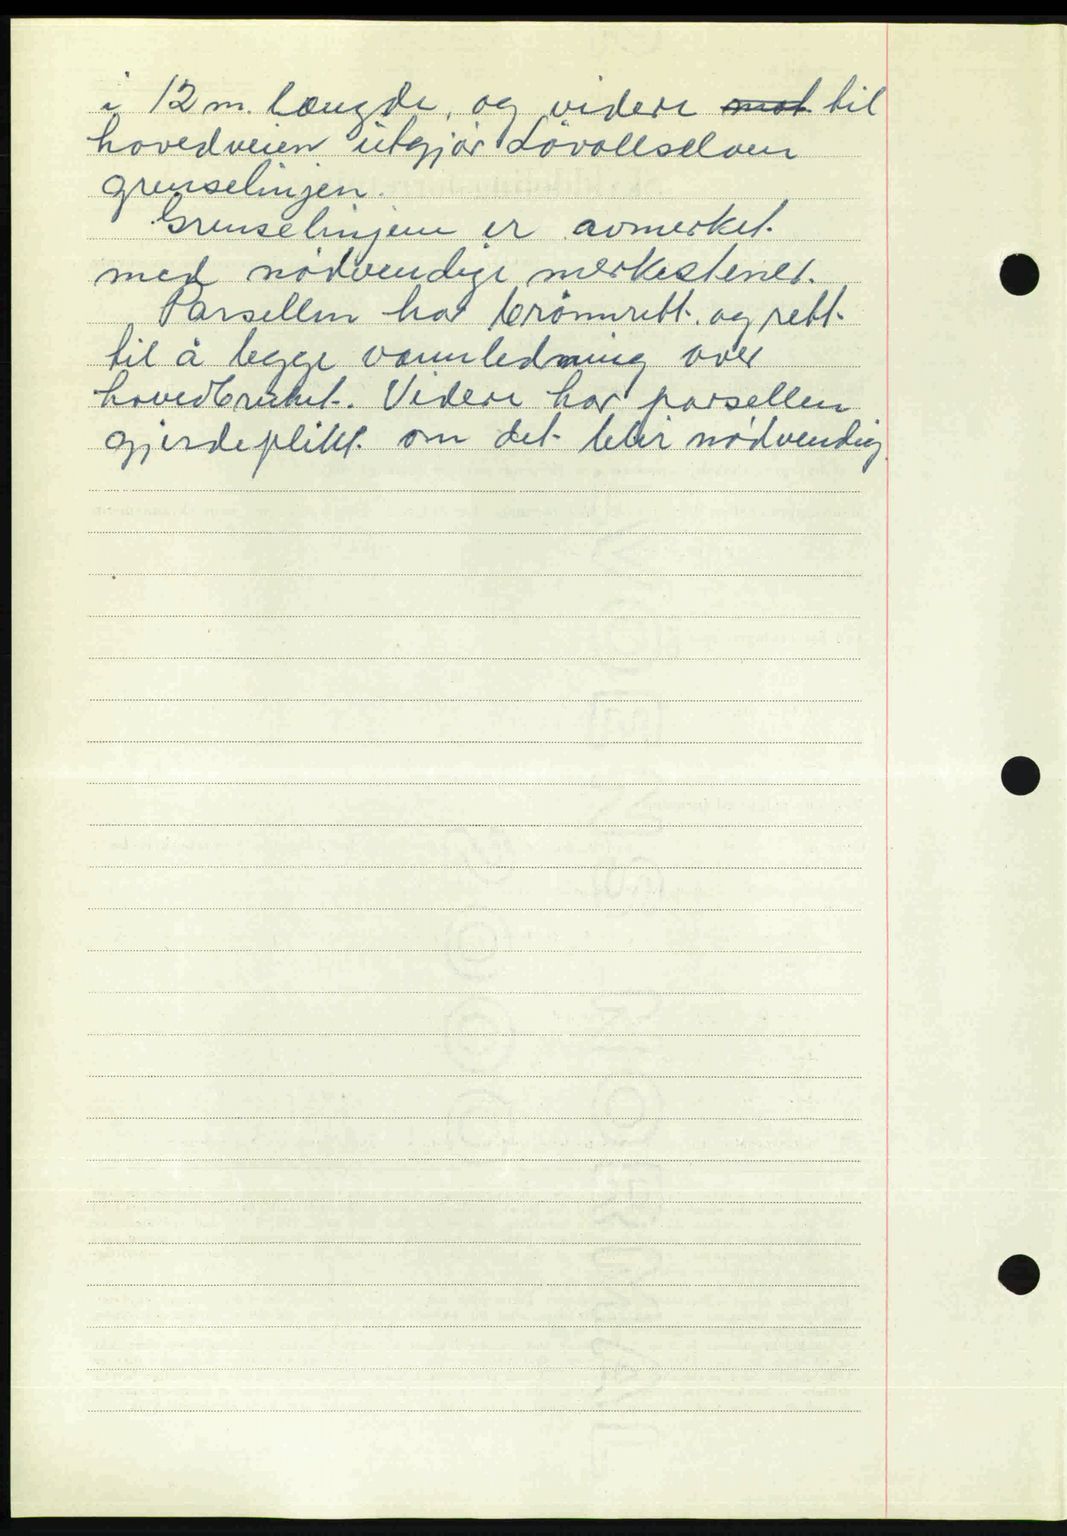 i 12 m. længde, og videre ~~mot~~ til
hovedveien utgjør Løvollselven
grenselinjen.
Grenselinjene er avmerket
med nødvendige merkestener.
Parsellen har brønnrett. og rett
til å legge vannledning over
hovedbruket. Videre har parsellen
gjerdeplikt om det blir nødvendig.